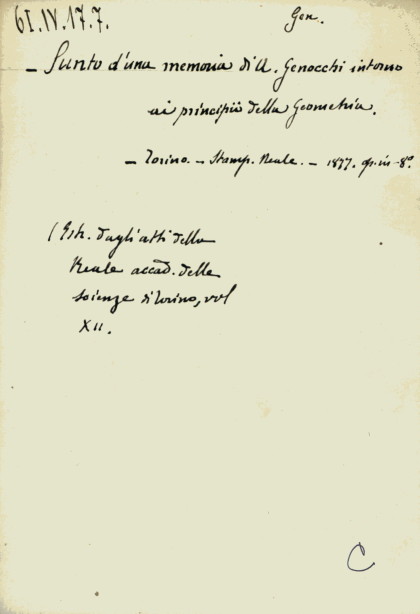 61.IV.17.7.
Gen.
- Sunto d'una memoria di A. Genocchi intorno
ai principii della Geometria.
- Torino. - Stamp. Reale. - 1877. op. in-8°.
(Estr. dagli atti della
Reale accad. delle
scienze di Torino, vol
XII.
C